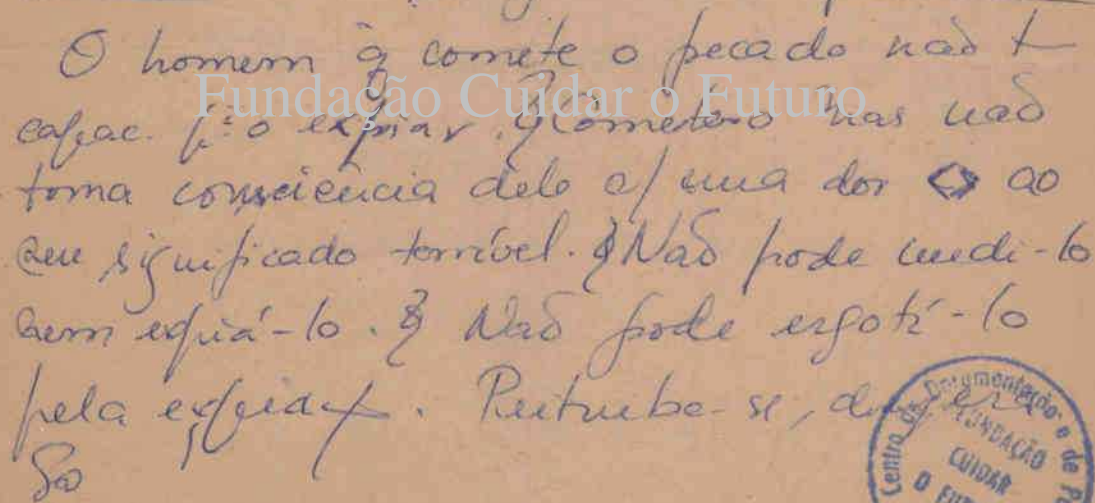 O homem q̃ comete o pecado não t
capac. p.ª o expiar. Cometeu-o mas não
toma consciência dele c/ uma dor <> ao
seu significado terrível. Não pode medi-lo
nem expiá-lo. Não pode esgotá-lo
pela expiaç. Perturba-se,
So
Fundação Cuidar o Futuro
Centro de Documentação e de P
FUNDAÇÃO
CUIDAR
O FUTURO